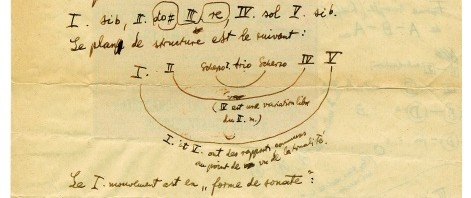 I. sib, II. do# III. re, IV. sol V. sib.
Le plan de structure est le suivant:
I. II Scherzo. Trio Scherzo IV V
(IV est une variation libre
du II. m.)
I. et V. ont des rapports communs
au point de vue de la tonalité.
Le I. mouvement est en „forme de sonate":